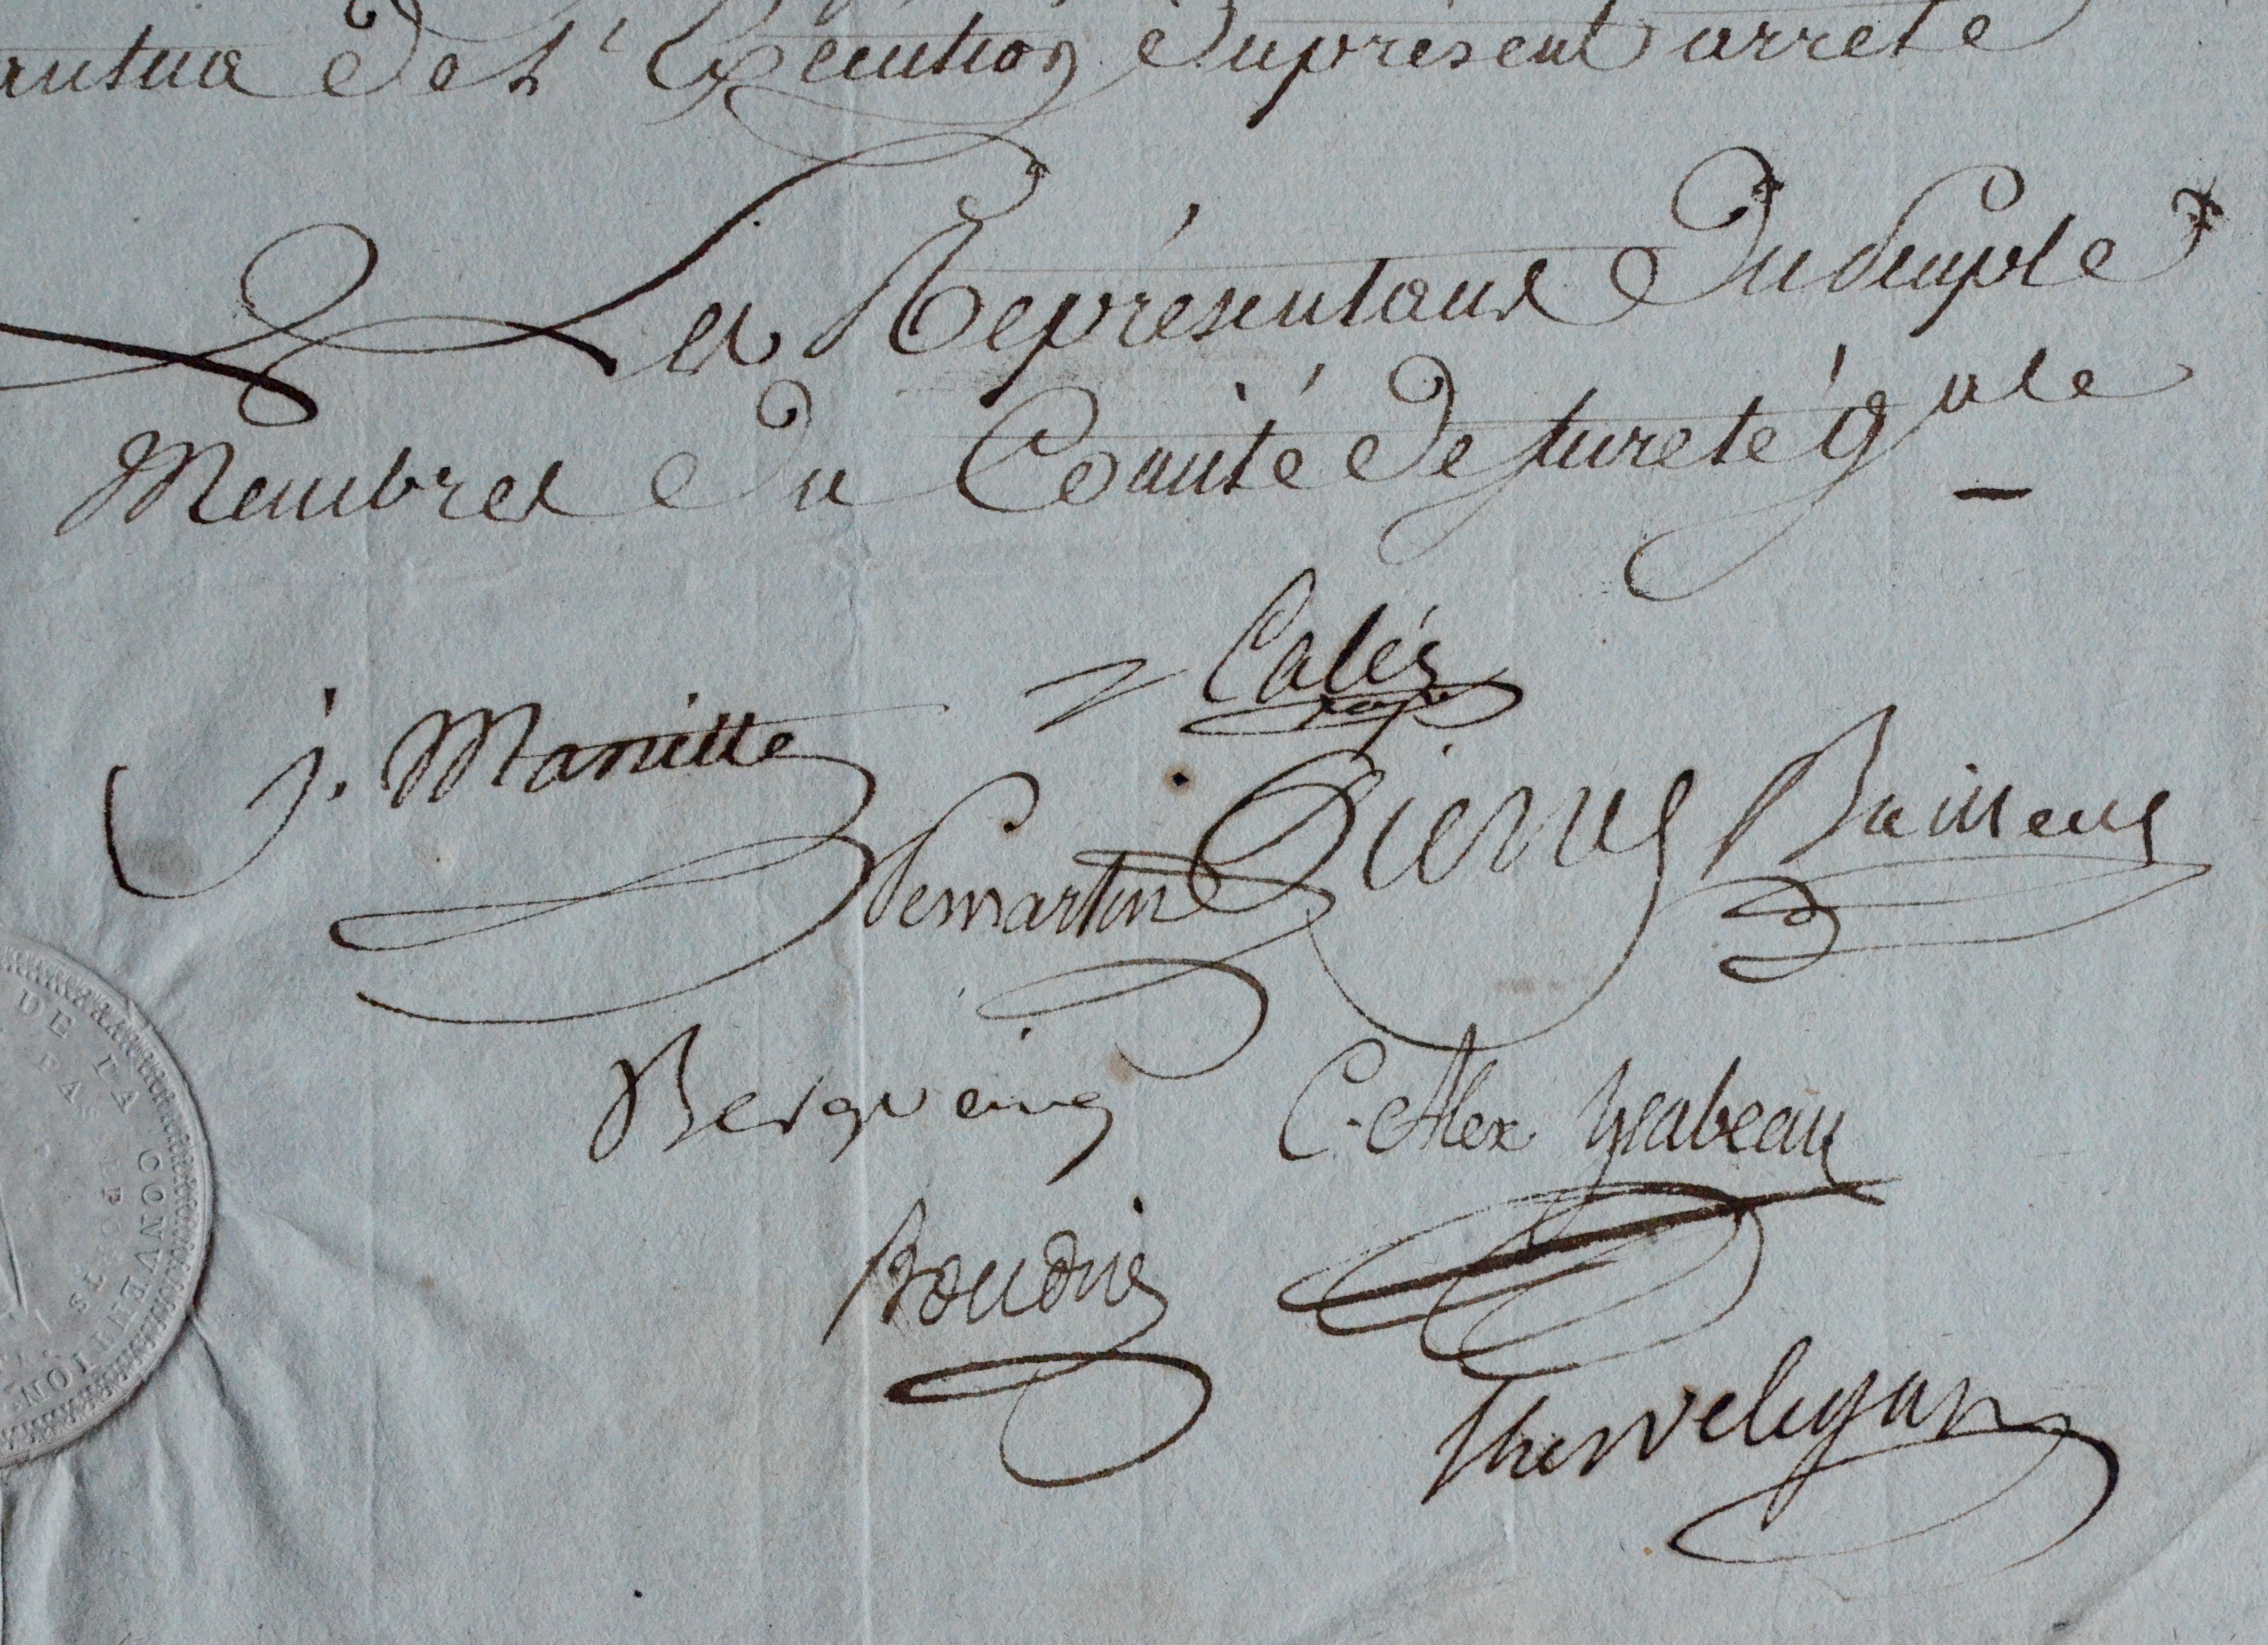 antua de l'Exécution du présent arreté
Les Représentans du Peuple
Membres du Comité de sureté gale
Calès
j. Mariette
Pierret
Pemartin
Bergoeing
C. Alex Ysabeau
Boudin
Kervelegan
DE LA CONVENTION